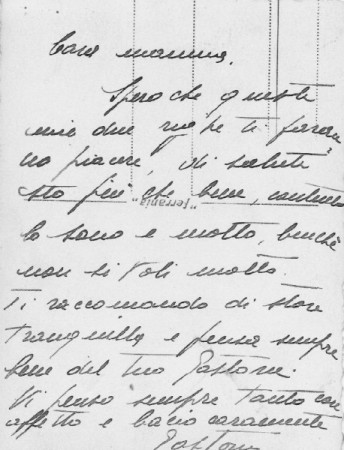 Cara mamma,
Spero che queste
mie due righe ti faran-
no piacere, di salute
sto più che bene, contento
"ferrania"
lo sono e molto, benché
non si voli molto.
Ti raccomando di stare
tranquilla e pensa sempre
bene del tuo Gastone.
Vi penso sempre tanto con
affetto e bacio caramente
Gastone